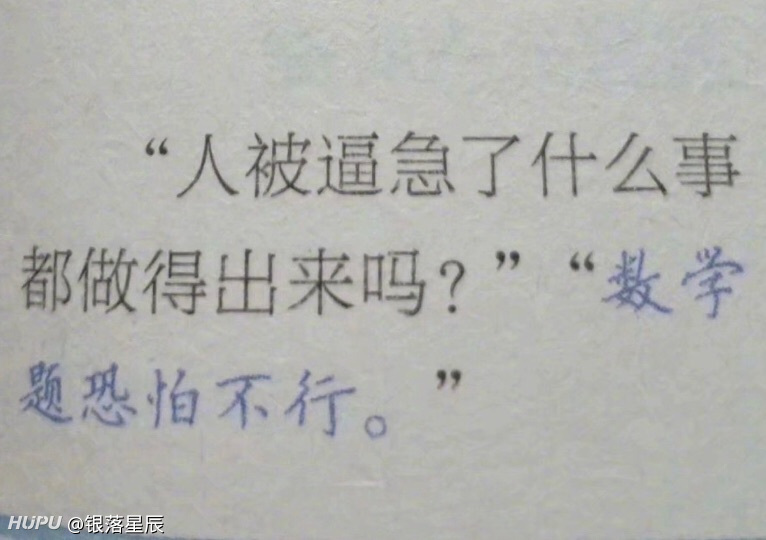 “人被逼急了什么事
都做得出来吗？”“数学
题恐怕不行。”
HUPU @银落星辰